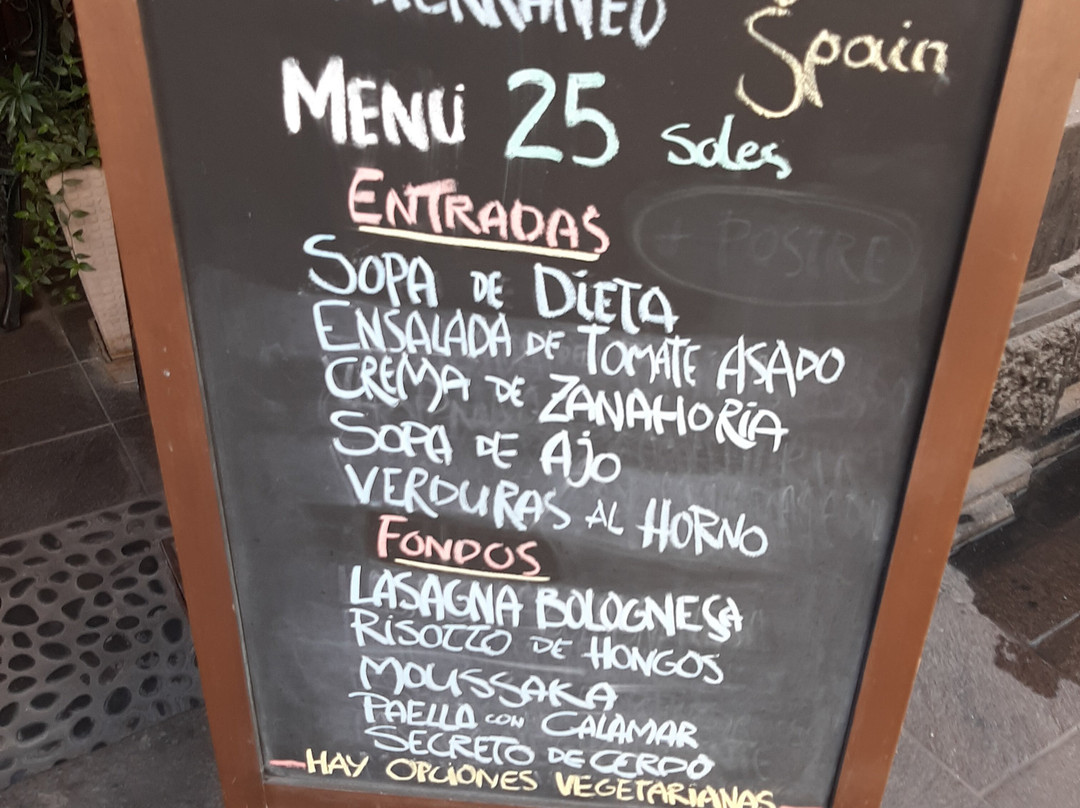 Spain
MENÚ 25 Soles
ENTRADAS
+ POSTRE
SOPA DE DIETA
ENSALADA DE TOMATE ASADO
CREMA DE ZANAHORIA
SOPA DE AJO
VERDURAS AL HORNO
FONDOS
LASAGNA BOLOGNESA
RISOTTO DE HONGOS
MOUSSAKA
PAELLA CON CALAMAR
SECRETO DE CERDO
HAY OPCIONES VEGETARIANAS